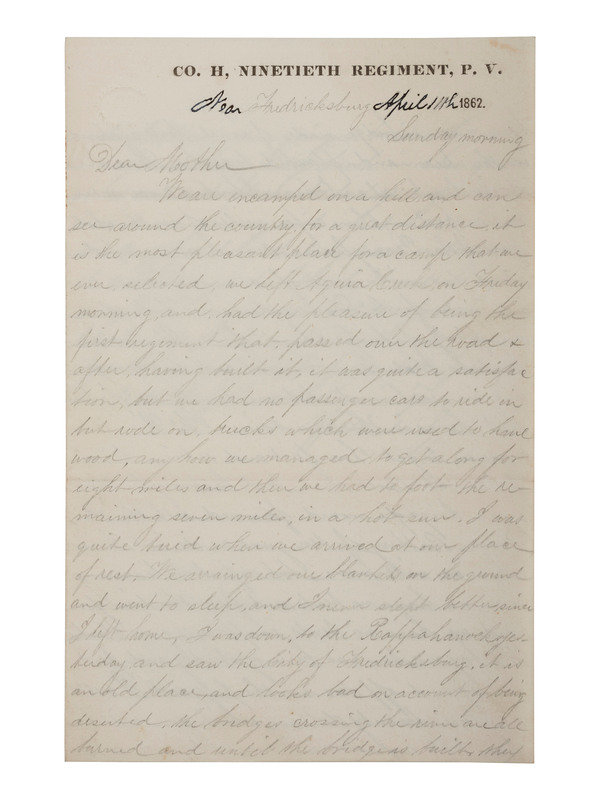 CO. H, NINETIETH REGIMENT, P. V.
Near Fredricksburg April 11th 1862.
Sunday morning
Dear Mother
We are encamped on a hill and can
see around the country, for a great distance, it
is the most pleasant place for a camp that we
ever selected, we left Aquia Creek on Friday
morning, and, had the pleasure of being the
first regiment that, passed over the road &
after, having built it, it was quite a satisfac
tion, but we had no passenger cars to ride in
but rode on, trucks which were used to haul
wood, anyhow we managed to get along for
eight miles and then we had to foot the re-
maining seven miles, in a hot sun. I was
quite tired when we arrived at our place
of rest. We arrainged our blankets on the ground
and went to sleep, and I never slept better, since
I left home, I was down, to the Rappahanock yes-
terday, and saw the City of Fredricksburg, it is
an old place, and looks bad on account of being
deserted, the bridges crossing the river are all
burned and until the bridge is built, they